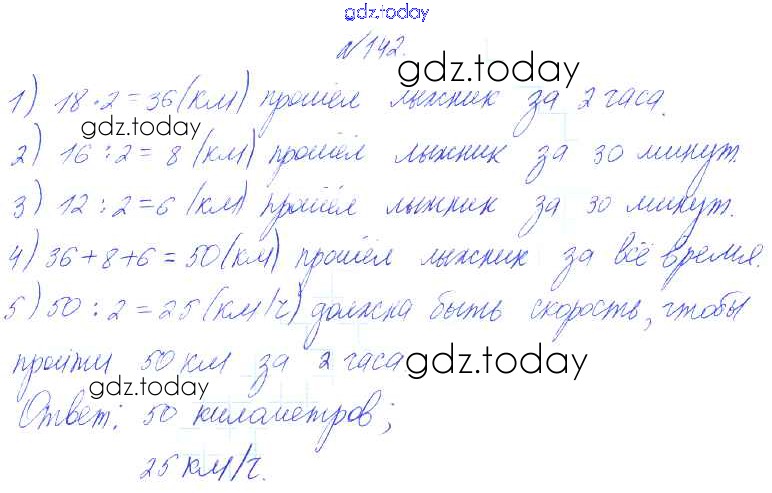 gdz.today
№142.
gdz.today
1) 18·2=36(км) прошёл лыжник за 2 часа.
gdz.today
2) 16:2= 8 (км) прошёл лыжник за 30 минут.
3) 12:2=6 (км) прошёл лыжник за 30 минут.
4) 36+8+6=50(км) прошёл лыжник за всё время.
5) 50:2=25(км/ч) должна быть скорость, чтобы
пройти 50 км за 2 часа
gdz.today
gdz.today
Ответ: 50 километров;
25 км/ч.